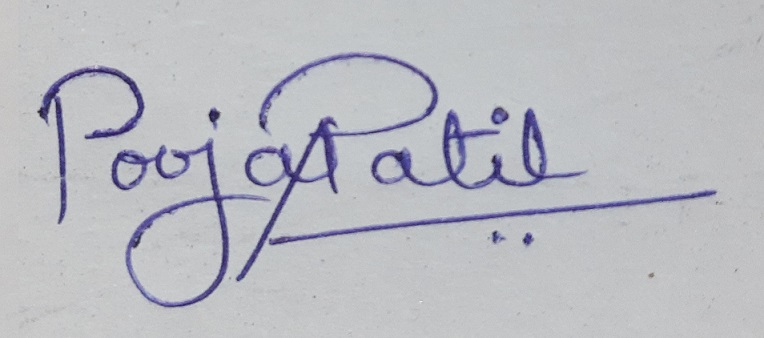 Pooja Patil